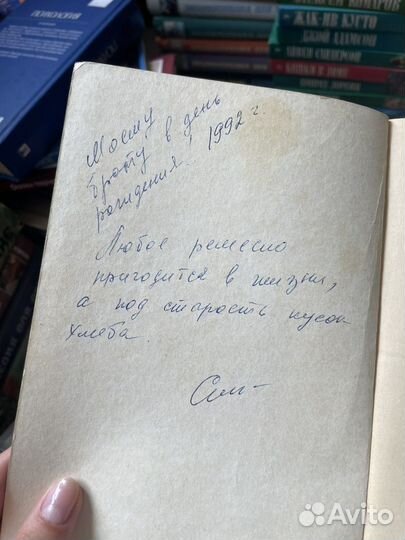 ПСИХОЛОГИЯ
ЖАК-ИВ КУСТО
ДЖОЙ АДАМСОН
Моему
брату в день
рождения! 1992 г.
Любое ремесло
пригодится в жизни,
а под старость кусок
хлеба.
Avito